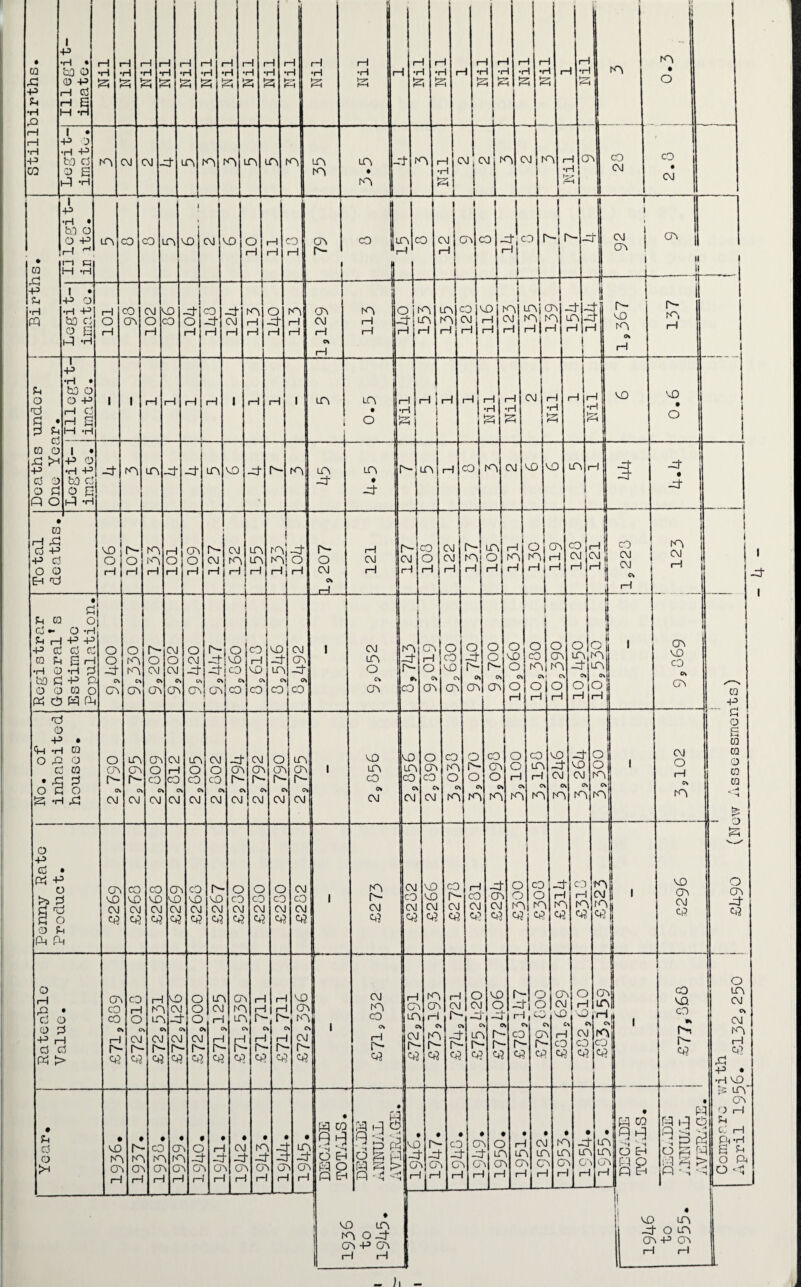 Year. Rateable Value. Penny Rate Product. No. of inhabited houses. Registrar General's Estimate of Population Total deaths. Deaths under One Year. Births. Stillbirths.
Legit-imate. Illegit-imate. Legit-imate. Illegit-imate. Legit-imate. Illegit-imate.
1936. £71,889 £269 2,790 9,400 106 4 - 101 5 3 Nil
1937. £72,018 £268 2,795 9,335 107 3 - 98 8 2 Nil
1938. £72,531 £268 2,809 9,207 133 5 1 102 8 2 Nil
1939. £72,426 £269 2,812 9,202 101 4 1 86 5 4 Nil
1940. £72,000 £268 2,805 9,420 109 4 1 104 6 5 Nil
1941. £71,155 £267 2,802 9,447 127 5 1 148 2 3 Nil
1942. £71,539 £280 2,794 8,860 152 6 - 124 6 3 Nil
1943. £71,711 £280 2,792 8,613 135 4 1 113 10 5 Nil
1944. £71,711 £280 2,790 8,546 133 7 1 140 11 5 Nil
1945. £72,396 £282 2,795 8,492 104 3 - 113 18 3 Nil
1936 to 1945. DECADE TOTALS. - - - - 1,207 45 5 1,129 79 35 Nil
DECADE ANNUAL AVERAGE. £71,832 £273 2,856 9,052 121 4.5 0.5 113 8 3.5 Nil
1946. £72,591 £282 2,856 8,743 127 7 Nil 140 15 4 1
1947. £73,193 £266 2,890 9,119 108 5 1 153 8 3 Nil
1948. £74,721 £278 3,038 9,630 122 1 1 135 12 Nil Nil
1949. £75,420 £281 3,070 9,740 137 8 1 128 9 2 1
1950. £77,406 £294 3,098 9,700 105 3 Nil 116 8 2 Nil
1951. £78,147 £300 3,100 10,060 131 2 Nil 123 14 3 Nil
1952. £79,800 £308 3,158 10,380 130 6 2 135 8 2 Nil
1953. £81,629 £314 3,246 10,330 119 6 Nil 139 7 3 Nil
1954. £82,610 £318 3,264 10,450 128 5 1 154 7 Nil 1
1955. £83,159 £323 3,300 10,530 121 1 Nil 144 4 9 Nil
1946 to 1955. DECADE TOTALS. - - - - 1,228 44 6 1,367 92 28 3
DECADE ANNUAL AVERAGE. £77,868 £296 3,102 9,869 123 4.4 0.6 137 9 2.8 0.3
Compare with April 1956. £132,250 £490 (New Assessments)
- 4 -